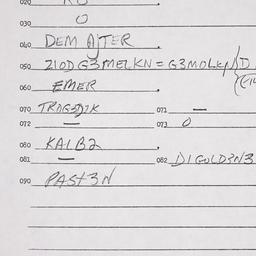 020
030 O
040 DEM AJTER
050 210D G3MELKN = G3MOLKY
060 EMER
070 TROG3D1K 071 —
072 — 073 O
080 KALB2
081 — 082 DIGOLD3N3
090 PAST3N